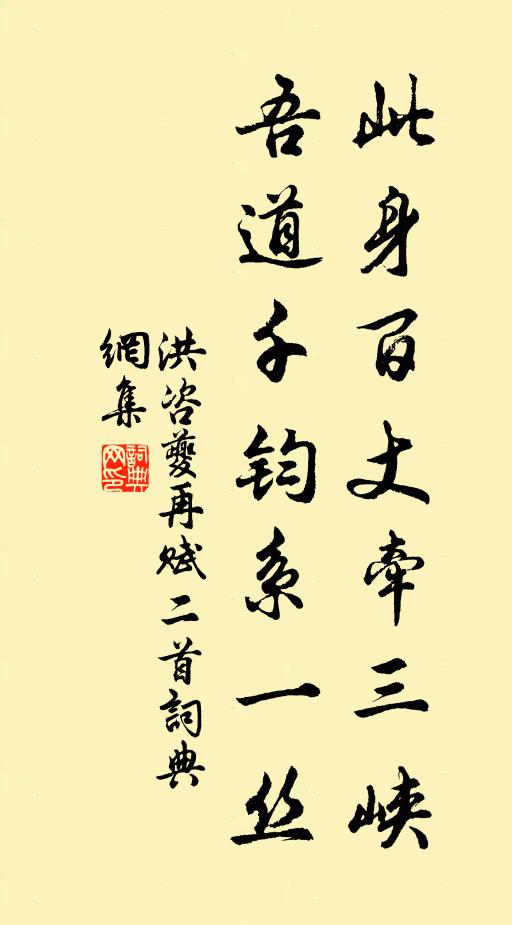 此身百丈牵三峡
吾道千钧系一丝
洪咨夔再赋二首詞典
網集
詞典網印